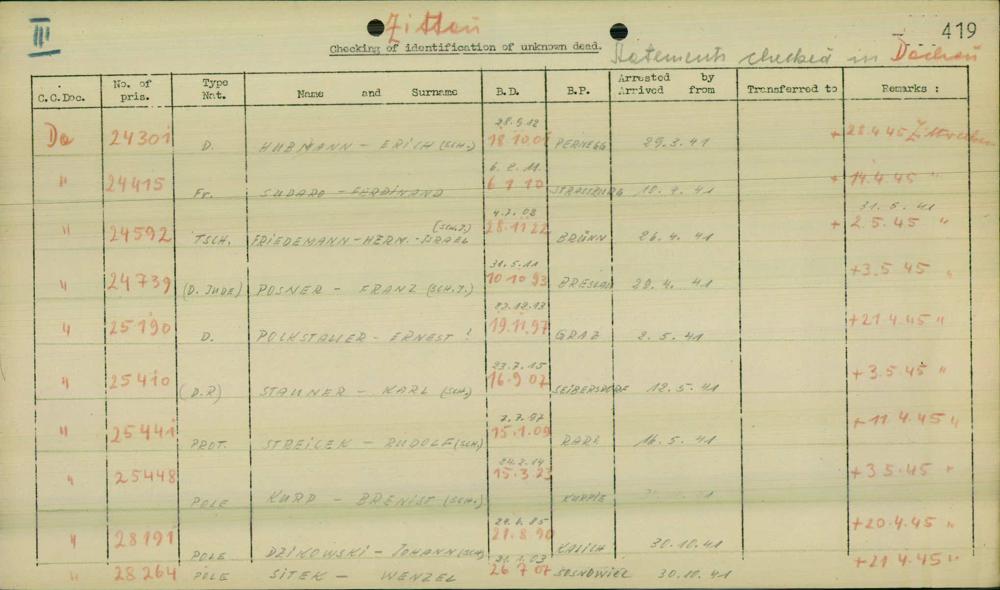 III Zittau 419
Checking of identification of unknown dead. Statements checked in Dachau
C.C.Doc. No. of pris. Type Nat. Name and Surname B.D. B.P. Arrested by Arrived from Transferred to Remarks :
28.9.12
Da 24301 D. HUBMANN - ERICH (SCH.) PERNEGG 29.3.41 + 28.4.45
6.2.11.
" 24415 Fr. SUDARD - FERDINAND 6 1 10 STRASSBURG 18.4.41 + 14.4.45 "
4.7.08 31.5.41
" 24592 TSCH. FRIEDEMANN - HERM. - ISRAEL (SCH.J.) 28.11 22 BRÜNN 26.4.41 + 2.5.45 "
31.5.11
" 24739 (D. JUDE) POSNER - FRANZ (SCH.J.) 10 10 93 BRESLAU 29.4.41 +3.5 45 "
" 25190 D. POLKSTALLER - ERNEST ! 19.11.97 GRAZ 2.5.41 +21.4.45 "
23.7.15
" 25410 (D.R) STAUNER - KARL (SCH.) 16.9 07 SEIBERSDORF 12.5.41 +3.5.45 "
" 25441 PROT. STREICEK - RUDOLF (SCH.) 15.1.09 16.5.41 +11 4.45 "
24.2.14
" 25448 POLE KURP - (SCH.) 15.3.23 +3 5.45 "
" 28191 POLE DZIKOWSKI - JOHANN (SCH.) 21.8 90 KALICH 30.10.41 +20.4.45 "
" 28264 POLE SITEK - WENZEL 26 7 07 SOSNOWIEC 30.10.41 +21 4.45 "